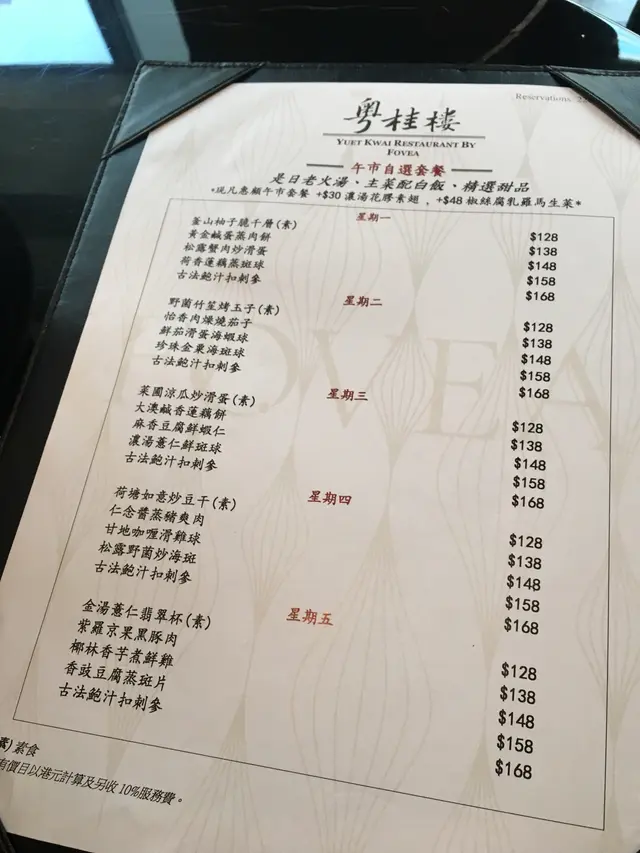 Reservations: 2
粤桂樓
YUET KWAI RESTAURANT BY
FOVEA
午市自選套餐
是日老火湯、主菜配白飯、精選甜品
*逢凡惠顧午市套餐 +$30 濃湯花膠素翅，+$48 椒絲腐乳羅馬生菜*
星期一
釜山柚子脆千層(素) $128
黃金鹹蛋蒸肉餅 $138
松露蟹肉炒滑蛋 $148
荷香蓮藕蒸斑球 $158
古法鮑汁扣刺參 $168
星期二
野菌竹笙烤玉子(素) $128
怡香肉燥燒茄子 $138
鮮茄滑蛋海蝦球 $148
珍珠金粟海斑球 $158
古法鮑汁扣刺參 $168
星期三
菜園涼瓜炒滑蛋(素) $128
大澳鹹香蓮藕餅 $138
麻香豆腐鮮蝦仁 $148
濃湯薏仁鮮斑球 $158
古法鮑汁扣刺參 $168
星期四
荷塘如意炒豆干(素) $128
仁念醬蒸豬爽肉 $138
甘地咖喱滑雞球 $148
松露野菌炒海斑 $158
古法鮑汁扣刺參 $168
星期五
金湯薏仁翡翠杯(素) $128
紫羅京果黑豚肉 $138
椰林香芋煮鮮雞 $148
香豉豆腐蒸斑片 $158
古法鮑汁扣刺參 $168
素) 素食
有價目以港元計算及另收 10%服務費。
FOVEA